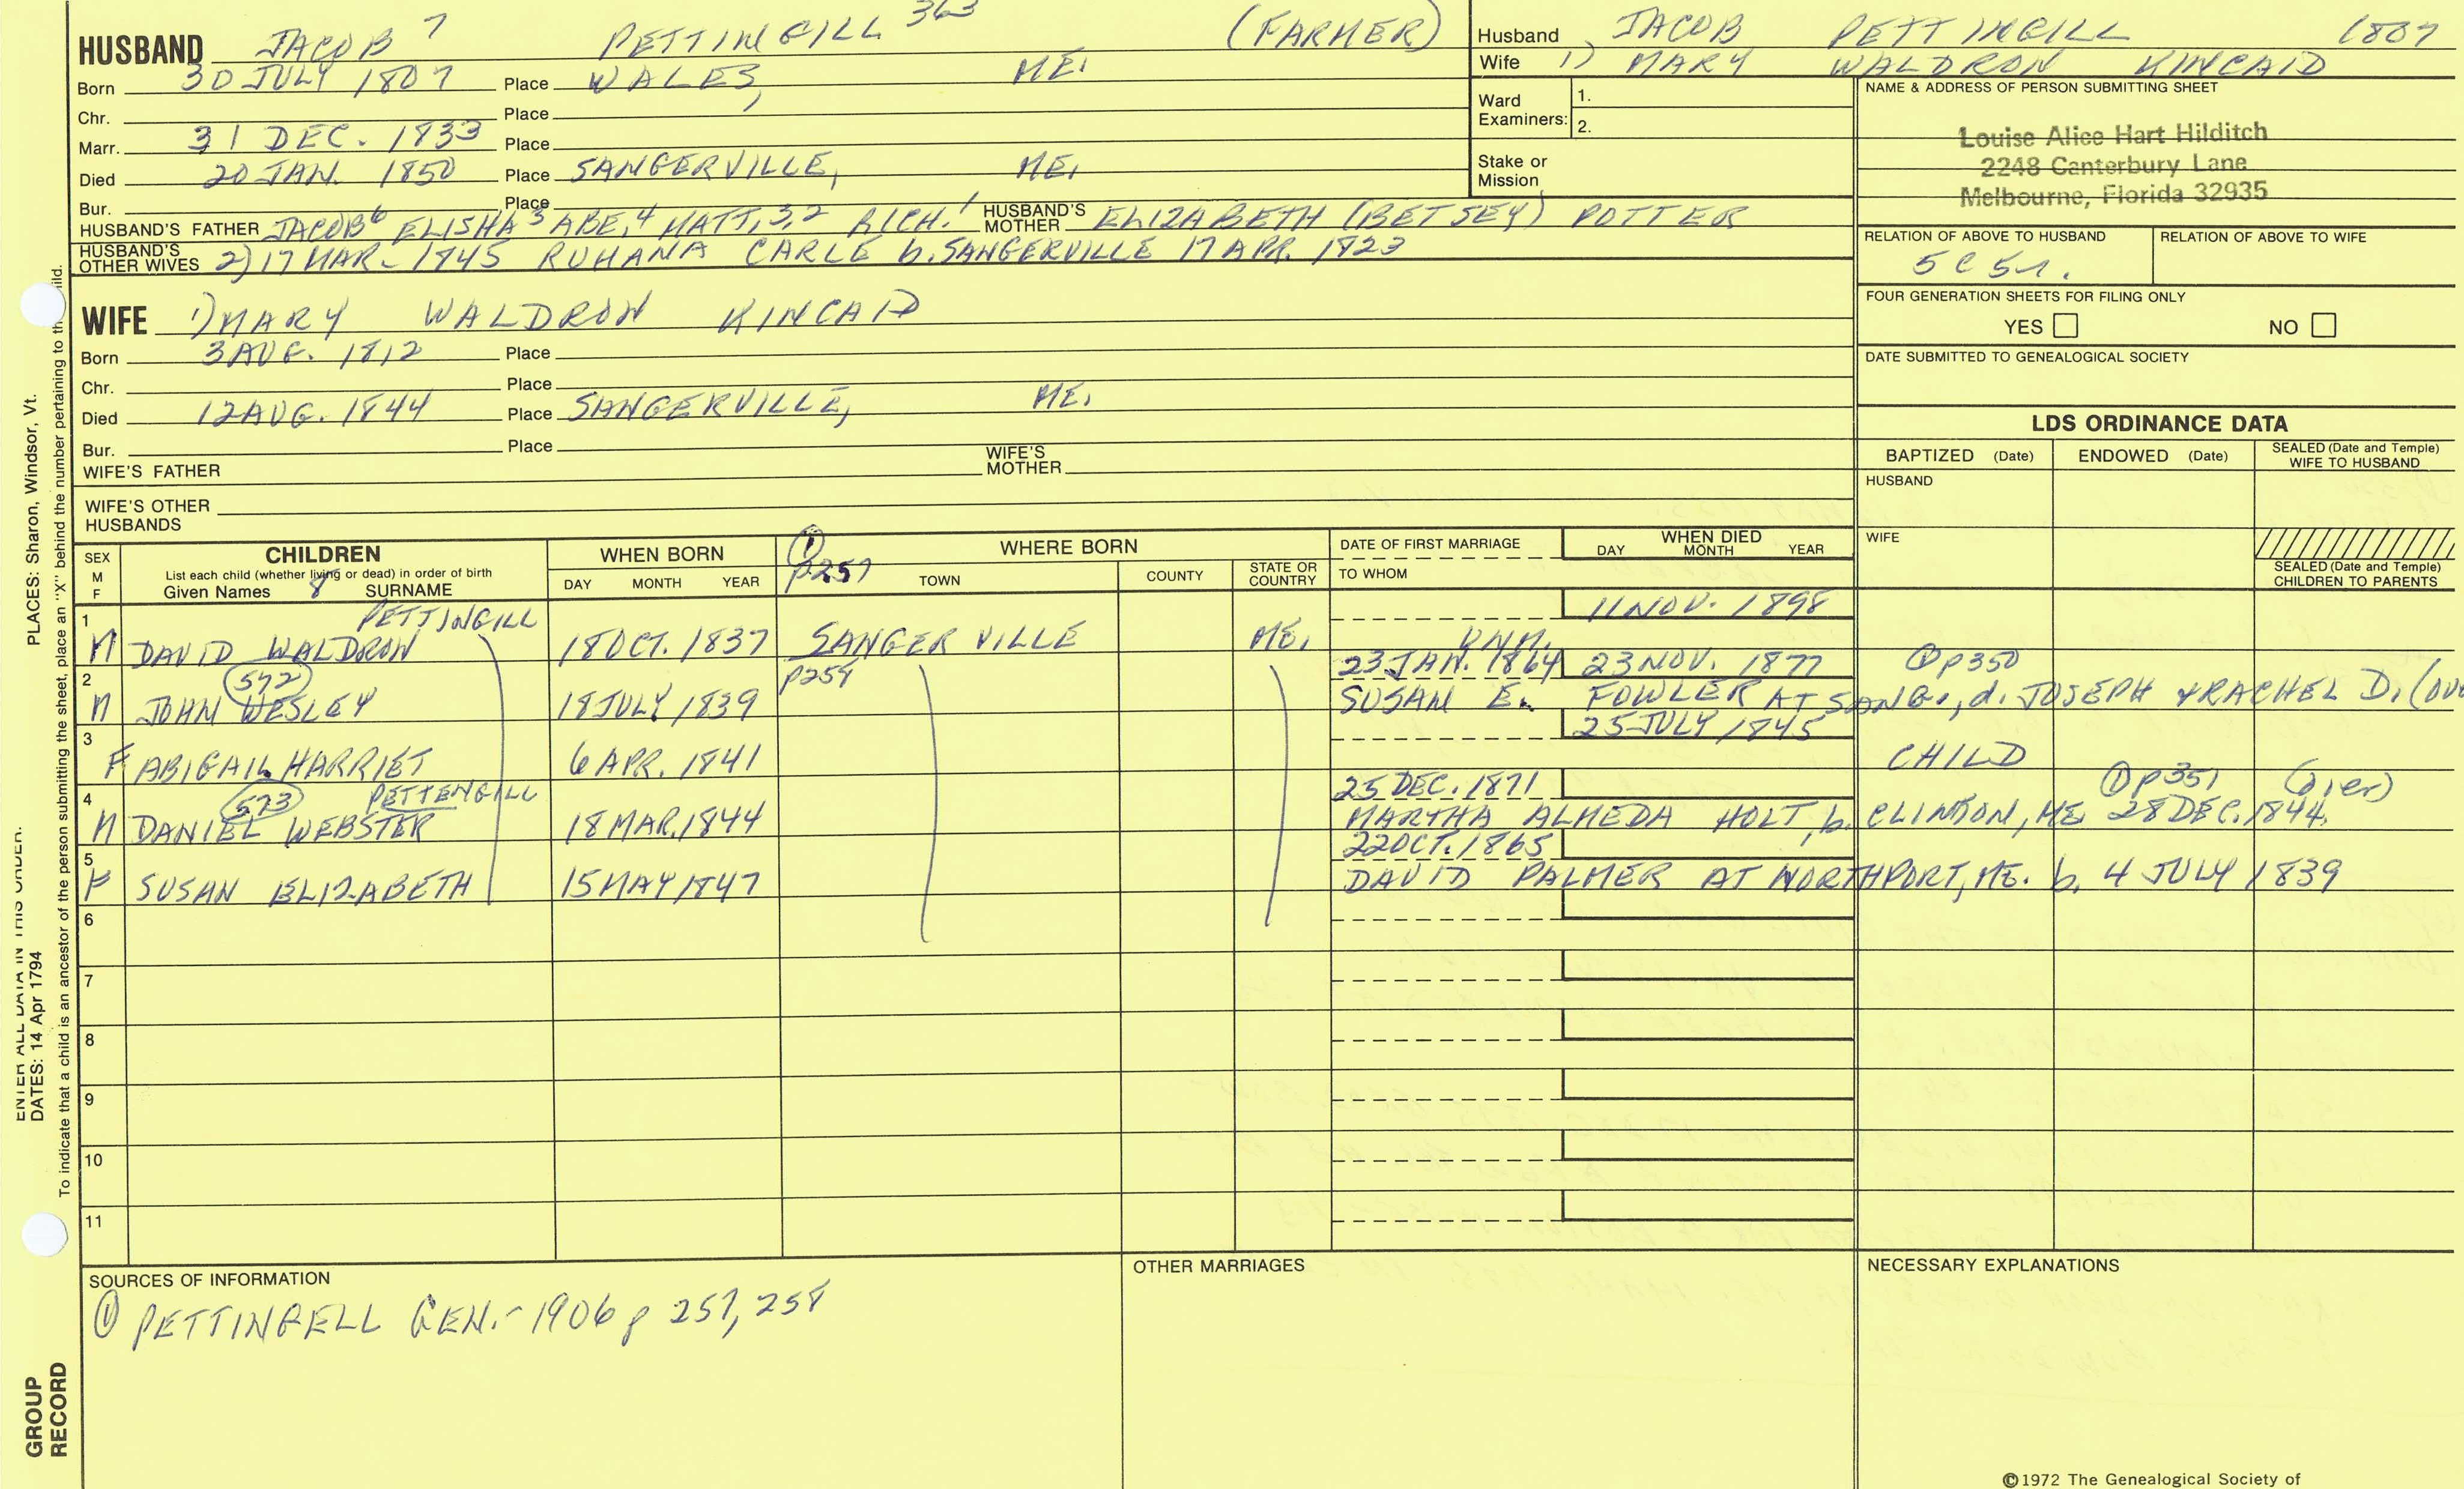 HUSBAND JACOB 7 PETTINGILL 363 (FARMER)
Born 30 JULY 1807 Place WALES, ME.
Chr. Place
Marr. 31 DEC. 1833 Place
Died 20 JAN. 1850 Place SANGERVILLE, ME.
Bur. Place
HUSBAND'S FATHER JACOB 6 ELISHA 5 ABE. 4 MATT. 3, 2 RICH. 1 HUSBAND'S MOTHER ELIZABETH (BETSEY) POTTER
HUSBAND'S OTHER WIVES 2) 17 MAR. 1845 RUHANA CARLE b. SANGERVILLE 17 APR. 1823
Husband JACOB PETTINGILL 1807
Wife 1) MARY WALDRON KINCAID
Ward Examiners: 1.
2.
Stake or Mission
NAME & ADDRESS OF PERSON SUBMITTING SHEET
Louise Alice Hart Hilditch
2248 Canterbury Lane
Melbourne, Florida 32935
RELATION OF ABOVE TO HUSBAND RELATION OF ABOVE TO WIFE
5 C 5 r.
FOUR GENERATION SHEETS FOR FILING ONLY
YES NO
DATE SUBMITTED TO GENEALOGICAL SOCIETY
WIFE 1) MARY WALDRON KINCAID
Born 3 AUG. 1812 Place
Chr. Place
Died 12 AUG. 1844 Place SANGERVILLE, ME.
Bur. Place
WIFE'S FATHER WIFE'S MOTHER
WIFE'S OTHER HUSBANDS
LDS ORDINANCE DATA
BAPTIZED (Date) ENDOWED (Date) SEALED (Date and Temple) WIFE TO HUSBAND
HUSBAND
WIFE
SEALED (Date and Temple) CHILDREN TO PARENTS
SEX M F
CHILDREN
List each child (whether living or dead) in order of birth
Given Names 8 SURNAME
WHEN BORN
DAY MONTH YEAR
① p257
WHERE BORN
TOWN COUNTY STATE OR COUNTRY
DATE OF FIRST MARRIAGE
TO WHOM
WHEN DIED
DAY MONTH YEAR
1 PETTINGILL 11 NOV. 1898
M DAVID WALDRON 18 OCT. 1837 SANGERVILLE ME. UNM.
2 572 p258 23 JAN. 1864 23 NOV. 1877 ① p350
M JOHN WESLEY 18 JULY 1839 SUSAN E. FOWLER AT SANG., d. JOSEPH & RACHEL D. (OVE
3 25 JULY 1845
F ABIGAIL HARRIET 6 APR. 1841 CHILD
4 573 PETTENGILL 25 DEC. 1871 ① p351 (over)
M DANIEL WEBSTER 18 MAR. 1844 MARTHA ALMEDA HOLT, b. CLINTON, ME. 28 DEC. 1844.
5 22 OCT. 1865
F SUSAN ELIZABETH 15 MAY 1847 DAVID PALMER AT NORTHPORT, ME. b. 4 JULY 1839
6
7
8
9
10
11
SOURCES OF INFORMATION
① PETTINGELL GEN.- 1906 p 257, 258
OTHER MARRIAGES
NECESSARY EXPLANATIONS
©1972 The Genealogical Society of
ENTER ALL DATA IN THIS ORDER:
DATES: 14 Apr 1794
PLACES: Sharon, Windsor, Vt.
To indicate that a child is an ancestor of the person submitting the sheet, place an "X" behind the number pertaining to th ild.
GROUP RECORD